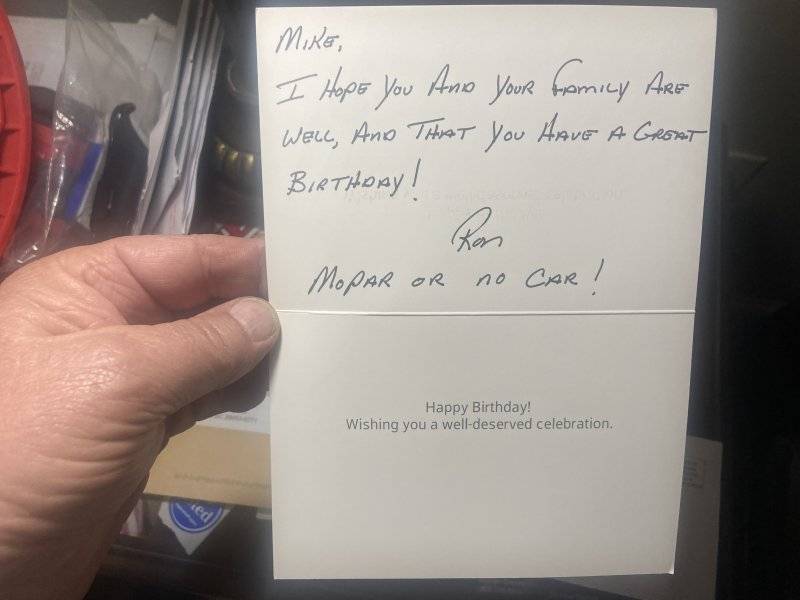 Mike,
I Hope You And Your Family Are
Well, And That You Have A Great
Birthday!
Ron
Mopar or no Car!
Happy Birthday!
Wishing you a well-deserved celebration.